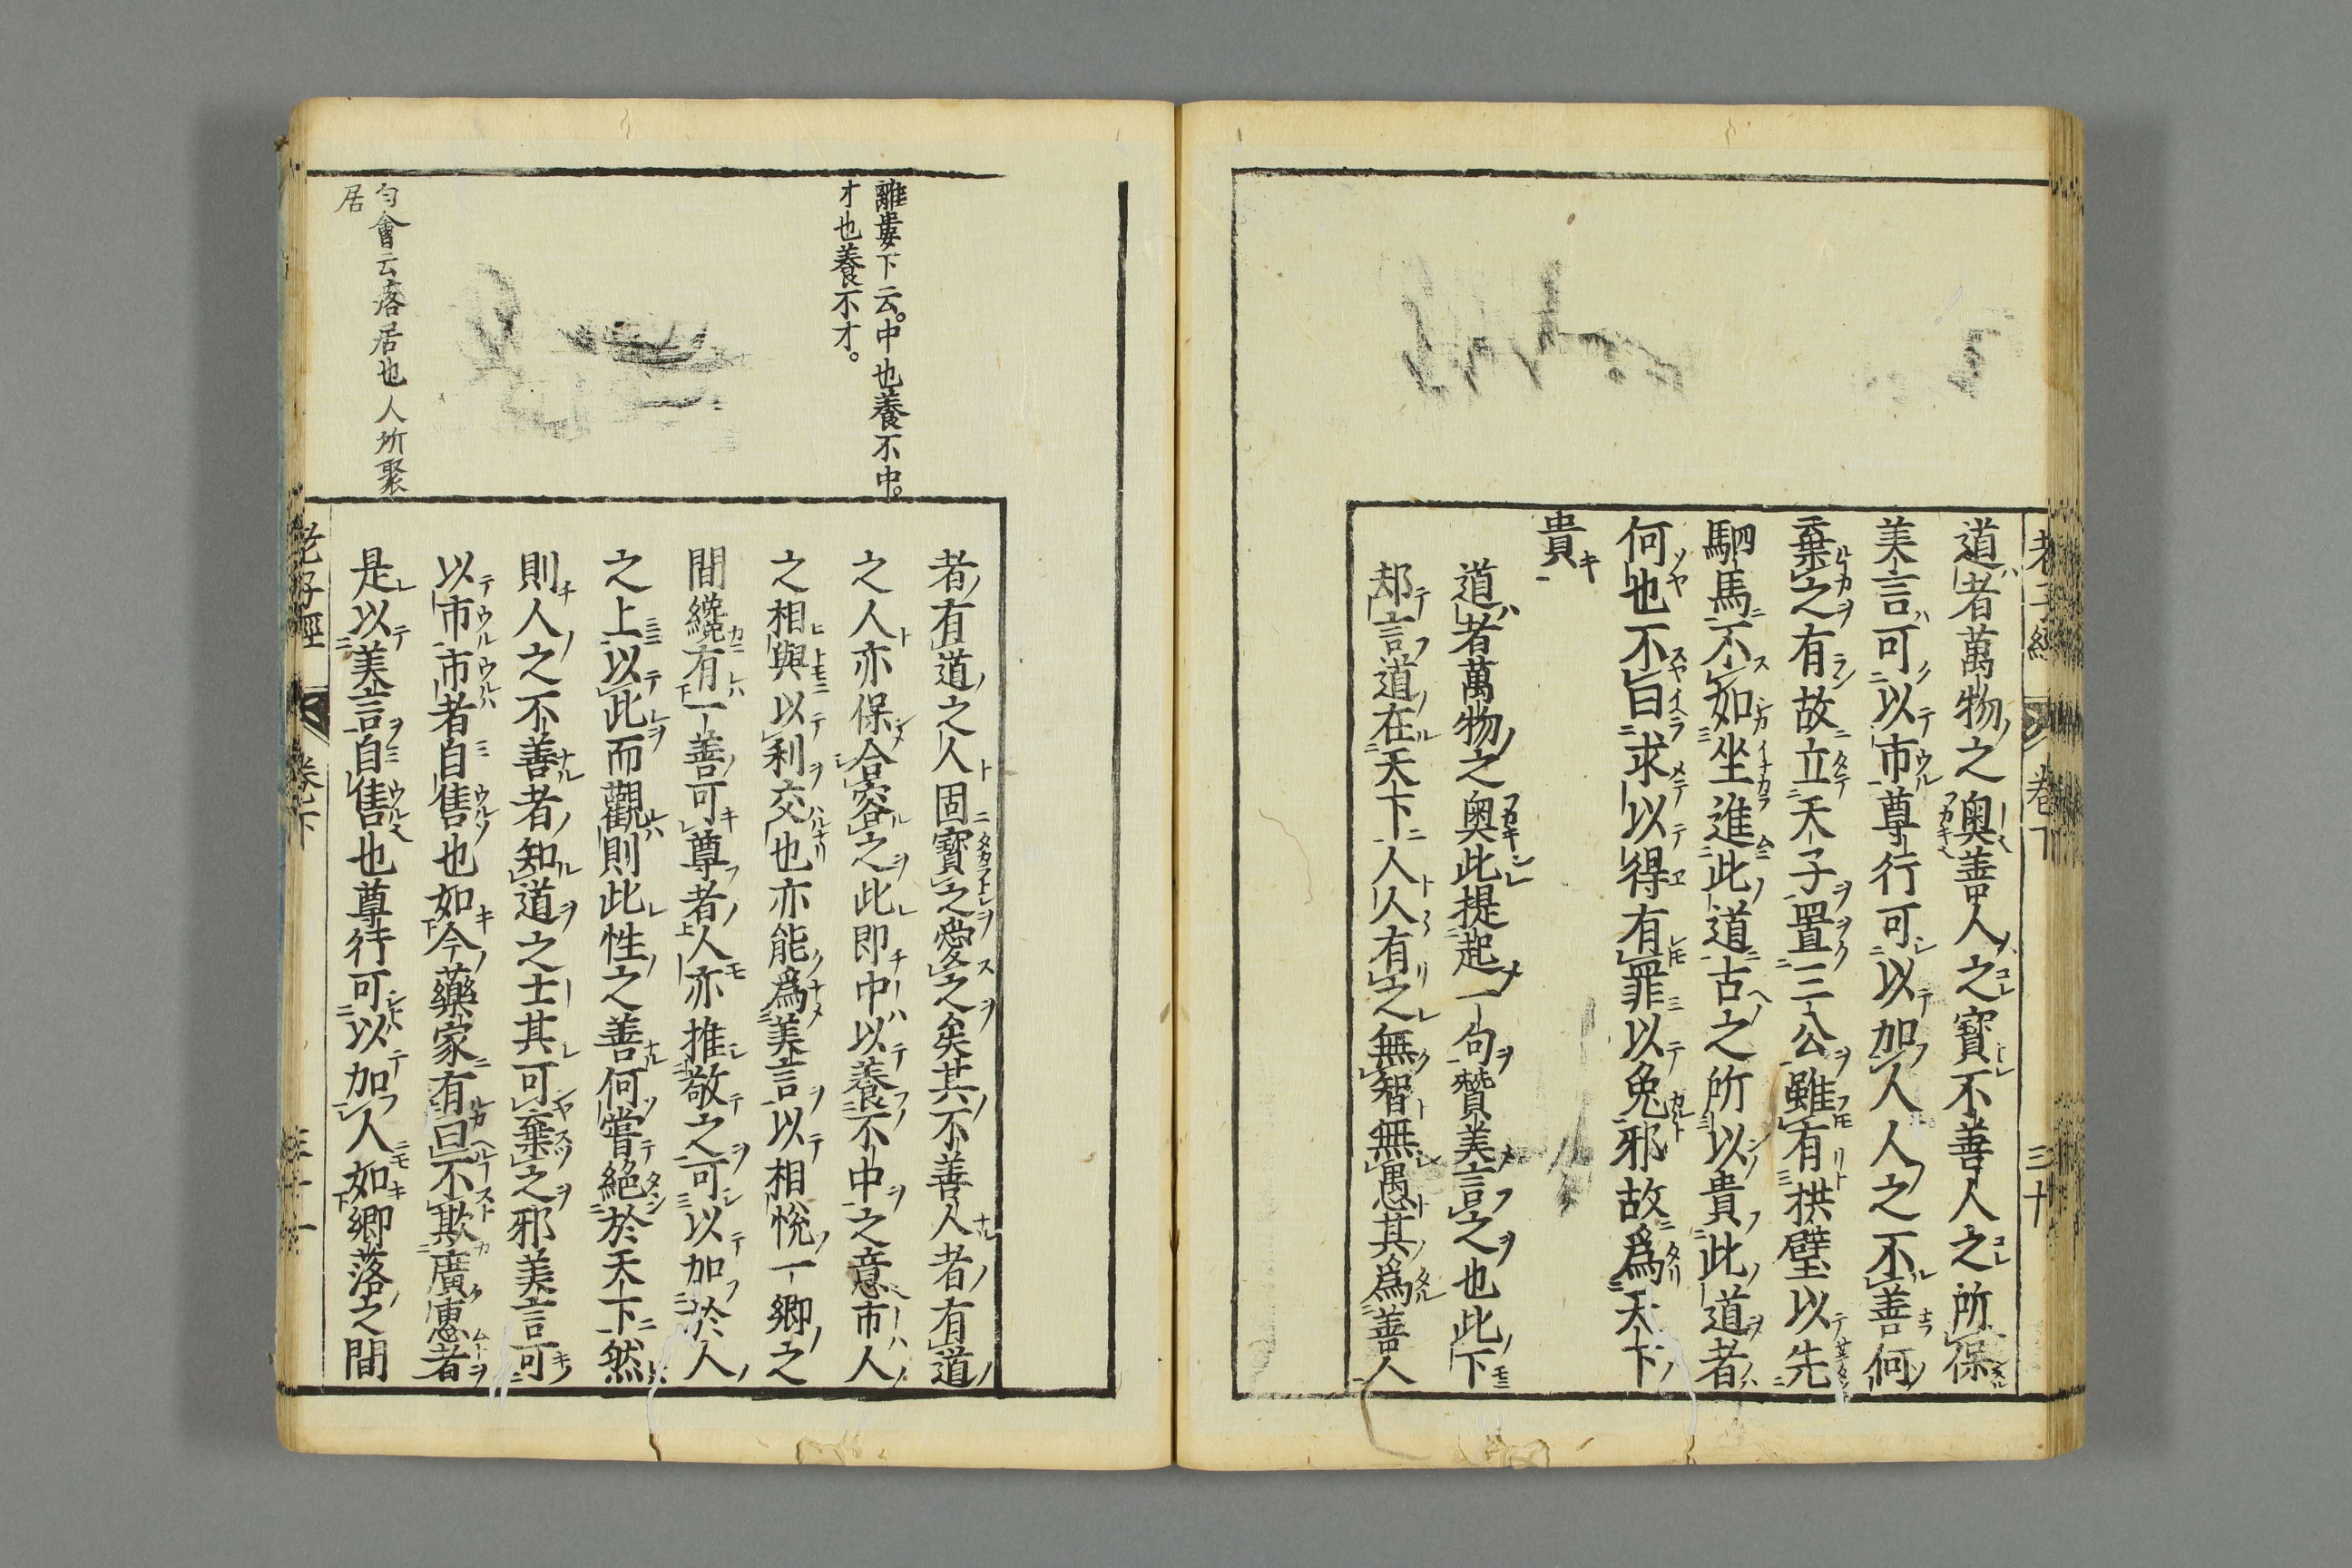 老子經 卷下 三十
道者萬物之奧善人之寶不善人之所保
美言可以市尊行可以加人人之不善何
棄之有故立天子置三公雖有拱璧以先
駟馬不如坐進此道古之所以貴此道者
何也不曰求以得有罪以免邪故爲天下
貴
道者萬物之奧此提起一句贊美言之也此下
却言道在天下人人有之無智無愚其爲善人
者有道之人固寶之愛之矣其不善人者有道
之人亦保合容之此即中以養不中之意市人
之相與以利交也亦能爲美言以相悅一鄉之
間纔有一善可尊者人亦推敬之可以加於人
之上以此而觀則此性之善何嘗絕於天下然
則人之不善者知道之士其可棄之邪美言可
以市市者自售也如今藥家有曰不欺廣惠者
是以美言自售也尊行可以加人如鄉落之間
離婁下云。中也養不中。
才也養不才。
勻會云落居也人所聚
居
老子經 卷下 三十一